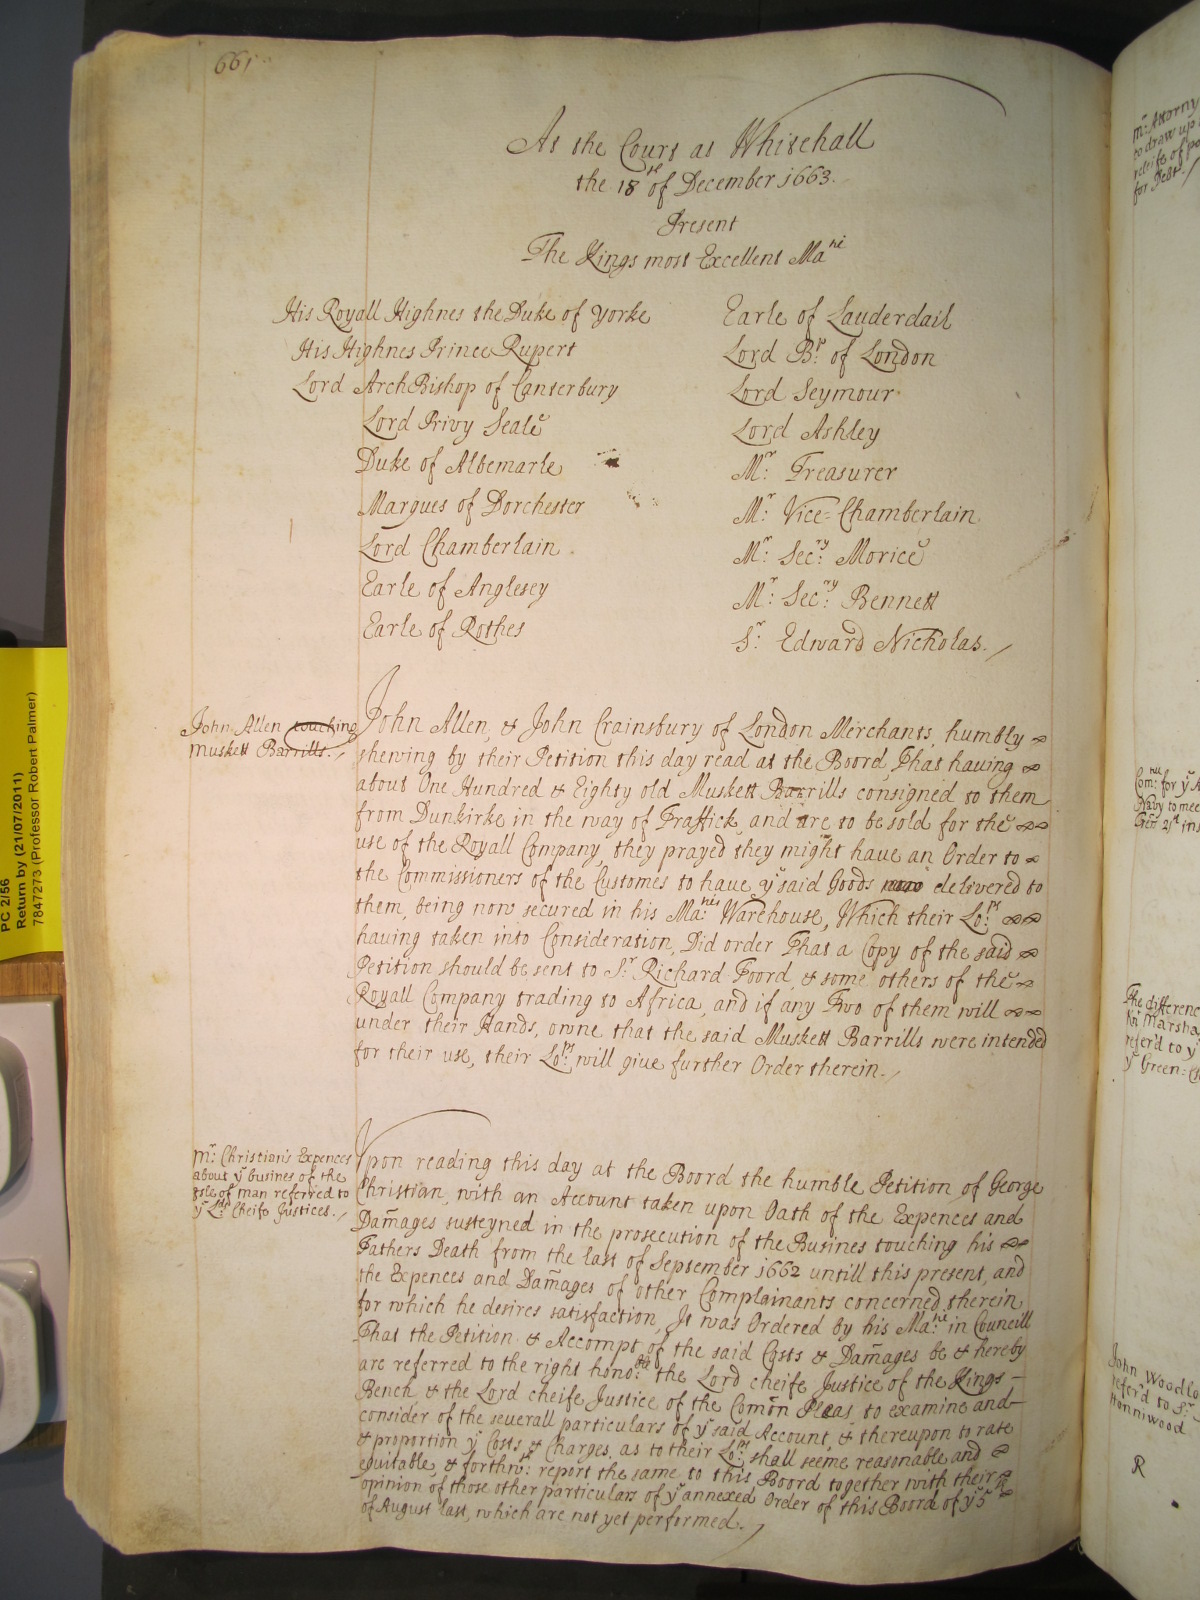 661
At the Court at Whitehall
the 18th of December 1663.
Present
The Kings most Excellent Matie
His Royall Highnes the Duke of Yorke
His Highnes Prince Rupert
Lord ArchBishop of Canterbury
Lord Privy Seale
Duke of Albemarle
Marques of Dorchester
Lord Chamberlain
Earle of Anglesey
Earle of Rothes
Earle of Lauderdail
Lord Bp: of London
Lord Seymour
Lord Ashley
Mr: Treasurer
Mr: Vice-Chamberlain
Mr: Secry: Morice
Mr: Secry: Bennett
Sr: Edward Nicholas.
John Allen touching
muskett Barrills.
John Allen, & John Crainsbury of London Merchants, humbly
shewing by their Petition this day read at the Boord, That having
about One Hundred & Eighty old Muskett Barrills consigned to them
from Dunkirke in the way of Traffick, and are to be sold for the
use of the Royall Company, they prayed they might have an Order to
the Commissioners of the Customes to haue ye said Goods delivered to
them, being now secured in his Maties: Warehouse, Which their Lops:
having taken into Consideration, Did order That a Copy of the said
Petition should be sent to Sr Richard Foord, & some others of the
Royall Company trading to Africa, and if any Two of them will
under their Hands, owne, that the said Muskett Barrills were intended
for their use, their Lops: will give further Order therein.
Mr: Christian's Expences
about ye busines of the
Isle of man referred to
ye Lds Cheife Justices.
Upon reading this day at the Boord the humble Petition of George
Christian, with an Account taken upon Oath of the Expences and
Dam̄ages susteyned in the prosecution of the Busines touching his
Fathers Death from the last of September 1662 untill this present, and
the Expences and Dam̄ages of other Complainants concerned therein,
for which he desires satisfaction, It was Ordered by his Matie: in Councill
That the Petition & Accompt of the said Costs & Dam̄ages be & hereby
are referred to the right honoble: the Lord cheife Justice of the Kings
Bench & the Lord cheife Justice of the Com̄on Pleas, to examine and
consider of the severall particulars of ye said Account, & thereupon to rate
& proportion ye Costs & Charges, as to their Lops: shall seeme reasonable and
equitable, & forthwth: report the same to this Boord together with their
opinion of those other particulars of ye annexed Order of this Boord of ye 5th
of August last, which are not yet performed.
mr: Attorny
to draw up
releife of
for Debt.
for ye
Navy to mee
The difference
Marsha
refer'd to y
ye Green: C
John Woodlo
refer'd to Sr:
Honniwood
R
PC 2/56
Return by (21/07/2011)
7847273 (Professor Robert Palmer)